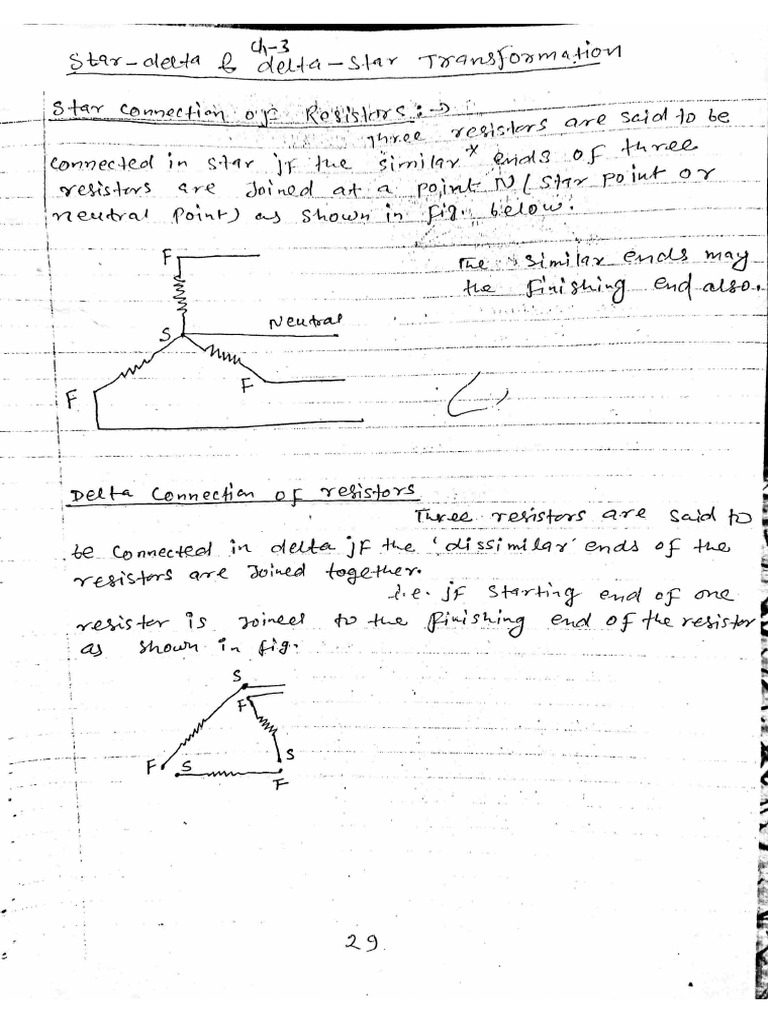 Ch-3
Star-delta & delta-star Transformation
Star connection of Resistors:→
Three resistors are said to be
connected in star if the similar* ends of three
resistors are Joined at a point N (Star point or
neutral point) as shown in fig. below.
The similar ends may
the finishing end also.
F
S
Neutral
F
F
Delta connection of resistors
Three resistors are said to
be connected in delta if the 'dissimilar' ends of the
resistors are Joined together.
i.e. if starting end of one
resistor is Joined to the finishing end of the resistor
as shown in fig.
S
F
F
S
S
F
29